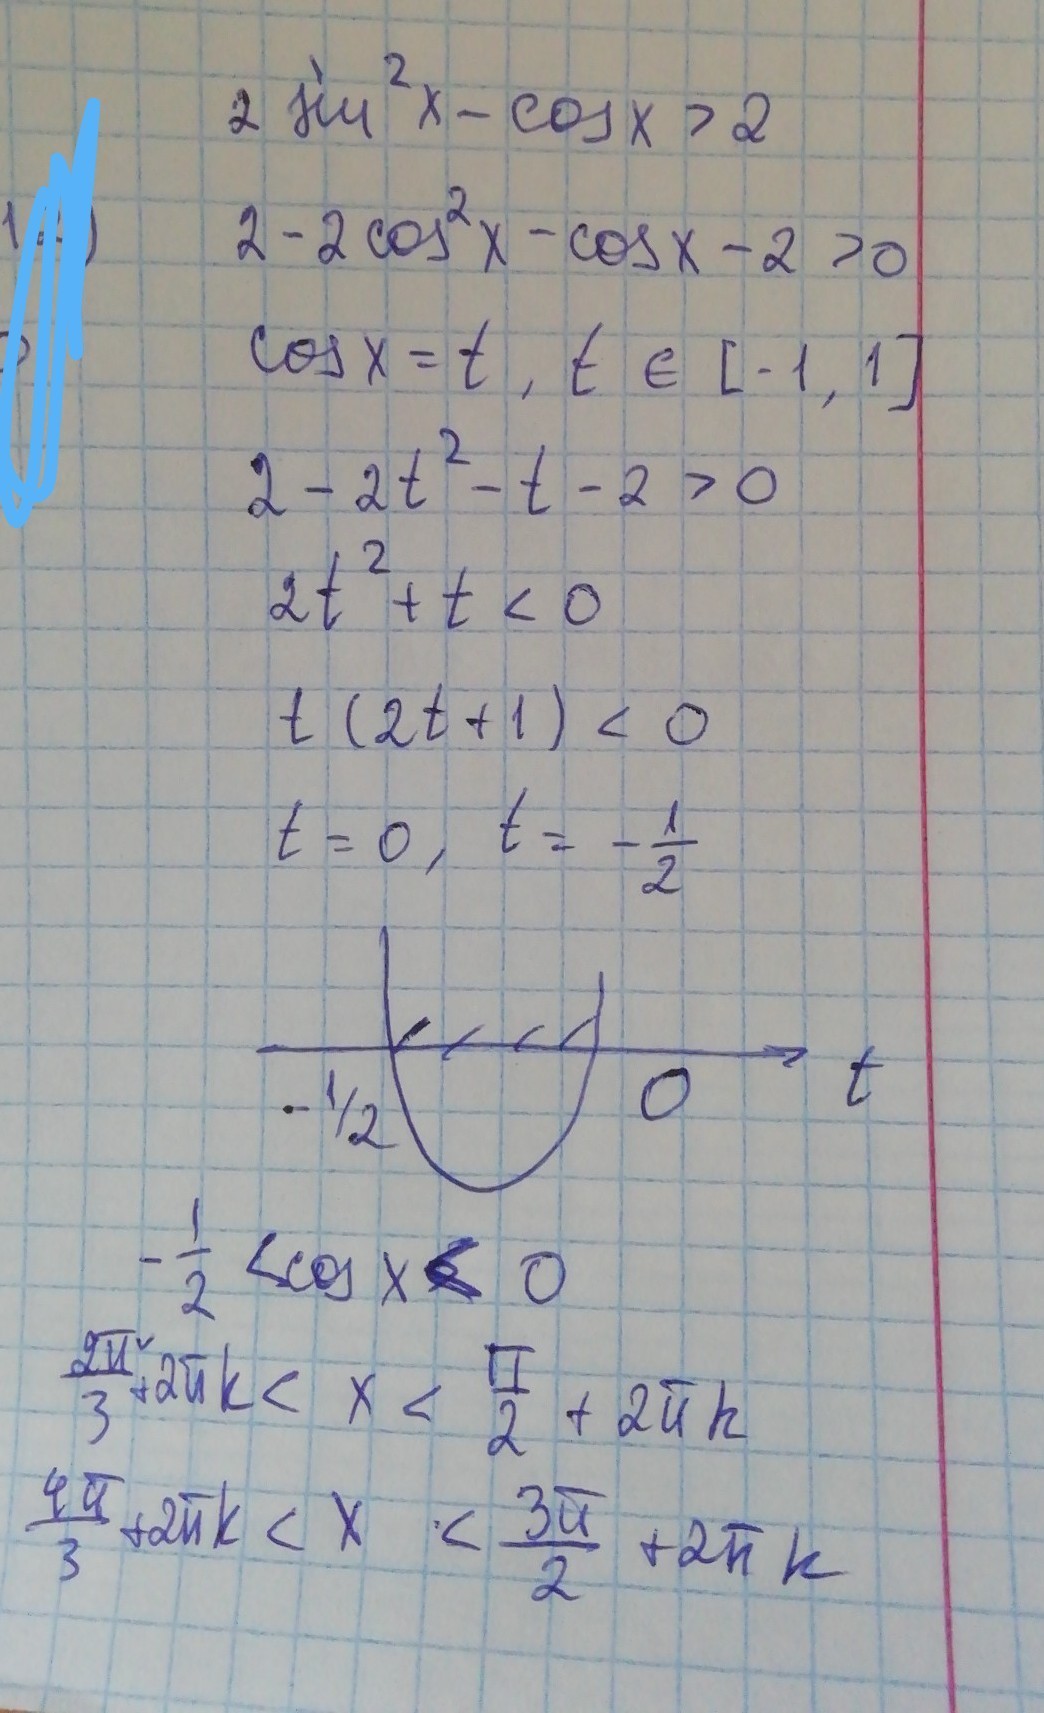 2 sin²x - cosx > 2
2 - 2cos²x - cosx - 2 > 0
cosx = t, t ∈ [-1, 1]
2 - 2t² - t - 2 > 0
2t² + t < 0
t (2t+1) < 0
t = 0, t = -1/2
-1/2 0 t
-1/2 < cos x < 0
2π/3 + 2πk < x < π/2 + 2πk
4π/3 + 2πk < x < 3π/2 + 2πk